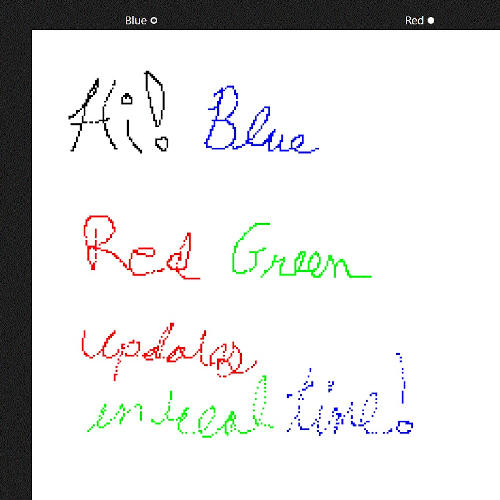 Blue Red
Hi! Blue
Red Green
updates
in real time!